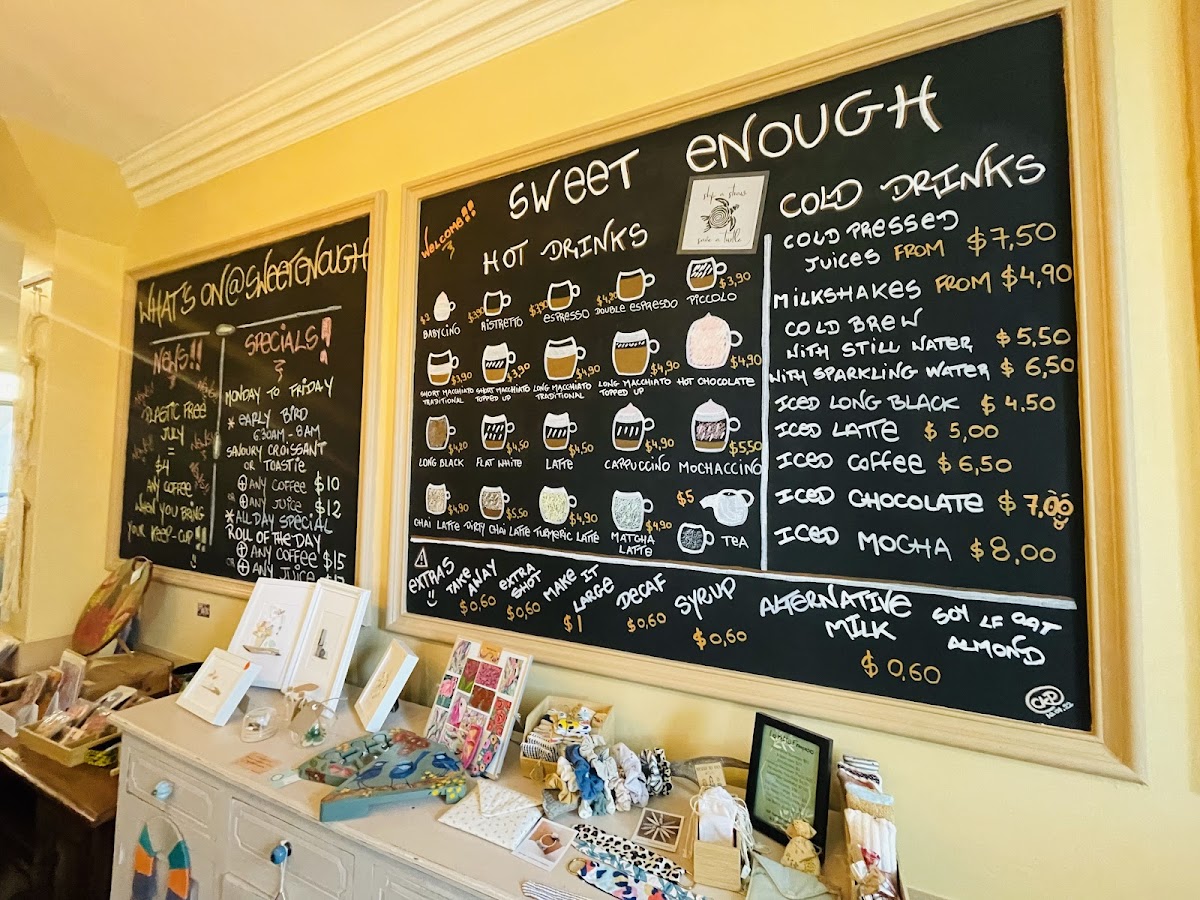 WHAT'S ON@SWEETENOUGH
NEWS!!
PLASTIC FREE
JULY
=
$4
ANY COFFEE
WHEN YOU BRING
YOUR KEEP-CUP!!
SPECIALS!
MONDAY TO FRIDAY
* EARLY BIRD
6:30AM - 8AM
SAVOURY CROISSANT
OR TOASTIE
+ ANY COFFEE $10
OR + ANY JUICE $12
* ALL DAY SPECIAL
ROLL OF THE DAY
+ ANY COFFEE $15
OR + ANY JUICE
WELCOME!!
SWEET ENOUGH
skip a straw
save a turtle
HOT DRINKS
$3,90
BABYCINO RISTRETTO ESPRESSO DOUBLE ESPRESSO PICCOLO
$3,90 $3,90 $4,90 $4,90 $4,90
SHORT MACCHIATO TRADITIONAL
SHORT MACCHIATO TOPPED UP
LONG MACCHIATO TRADITIONAL
LONG MACCHIATO TOPPED UP
HOT CHOCOLATE
$4,50 $4,50 $4,90 $5,50
LONG BLACK FLAT WHITE LATTE CAPPUCCINO MOCHACCINO
$4,90 $5,50 $4,90 $4,90 $5
CHAI LATTE DIRTY CHAI LATTE TURMERIC LATTE MATCHA LATTE TEA
COLD DRINKS
COLD PRESSED
JUICES FROM $7,50
MILKSHAKES FROM $4,90
COLD BREW
WITH STILL WATER $5,50
WITH SPARKLING WATER $6,50
ICED LONG BLACK $4.50
ICED LATTE $5,00
ICED COFFEE $6,50
ICED CHOCOLATE $7,00
ICED MOCHA $8,00
EXTRAS
TAKE AWAY $0,60
EXTRA SHOT $0,60
MAKE IT LARGE $1
DECAF $0,60
SYRUP $0,60
ALTERNATIVE MILK $0,60
SOY LF OAT
ALMOND